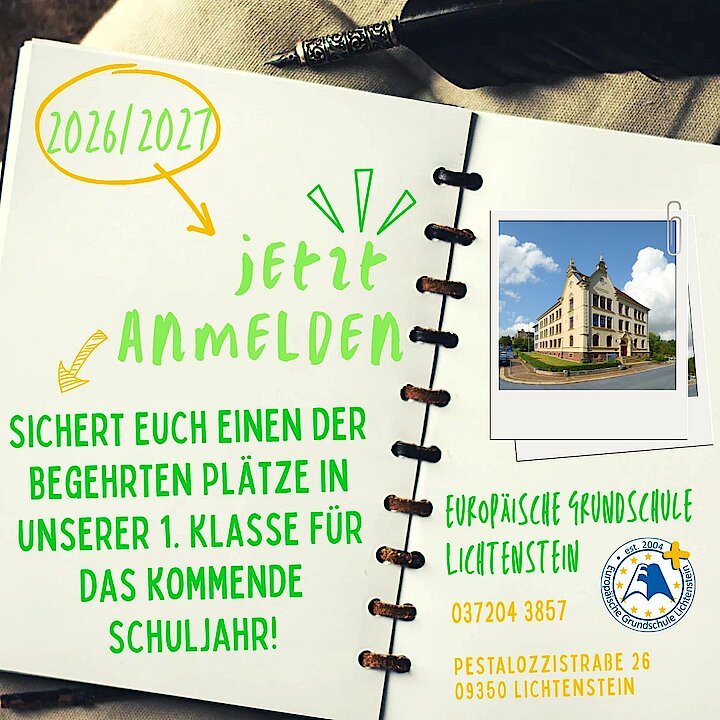 2026/2027
jETZT
ANMELDEN
SICHERT EUCH EINEN DER
BEGEHRTEN PLÄTZE IN
UNSERER 1. KLASSE FÜR
DAS KOMMENDE
SCHULJAHR!
EUROPÄISCHE GRUNDSCHULE
LICHTENSTEIN
• est. 2004 •
Europäische Grundschule Lichtenstein
037204 3857
PESTALOZZISTRAßE 26
09350 LICHTENSTEIN